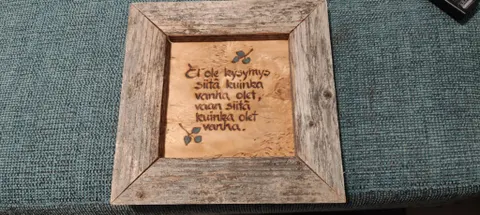 Ei ole kysymys
siitä kuinka
vanha olet,
vaan siitä
kuinka olet
vanha.